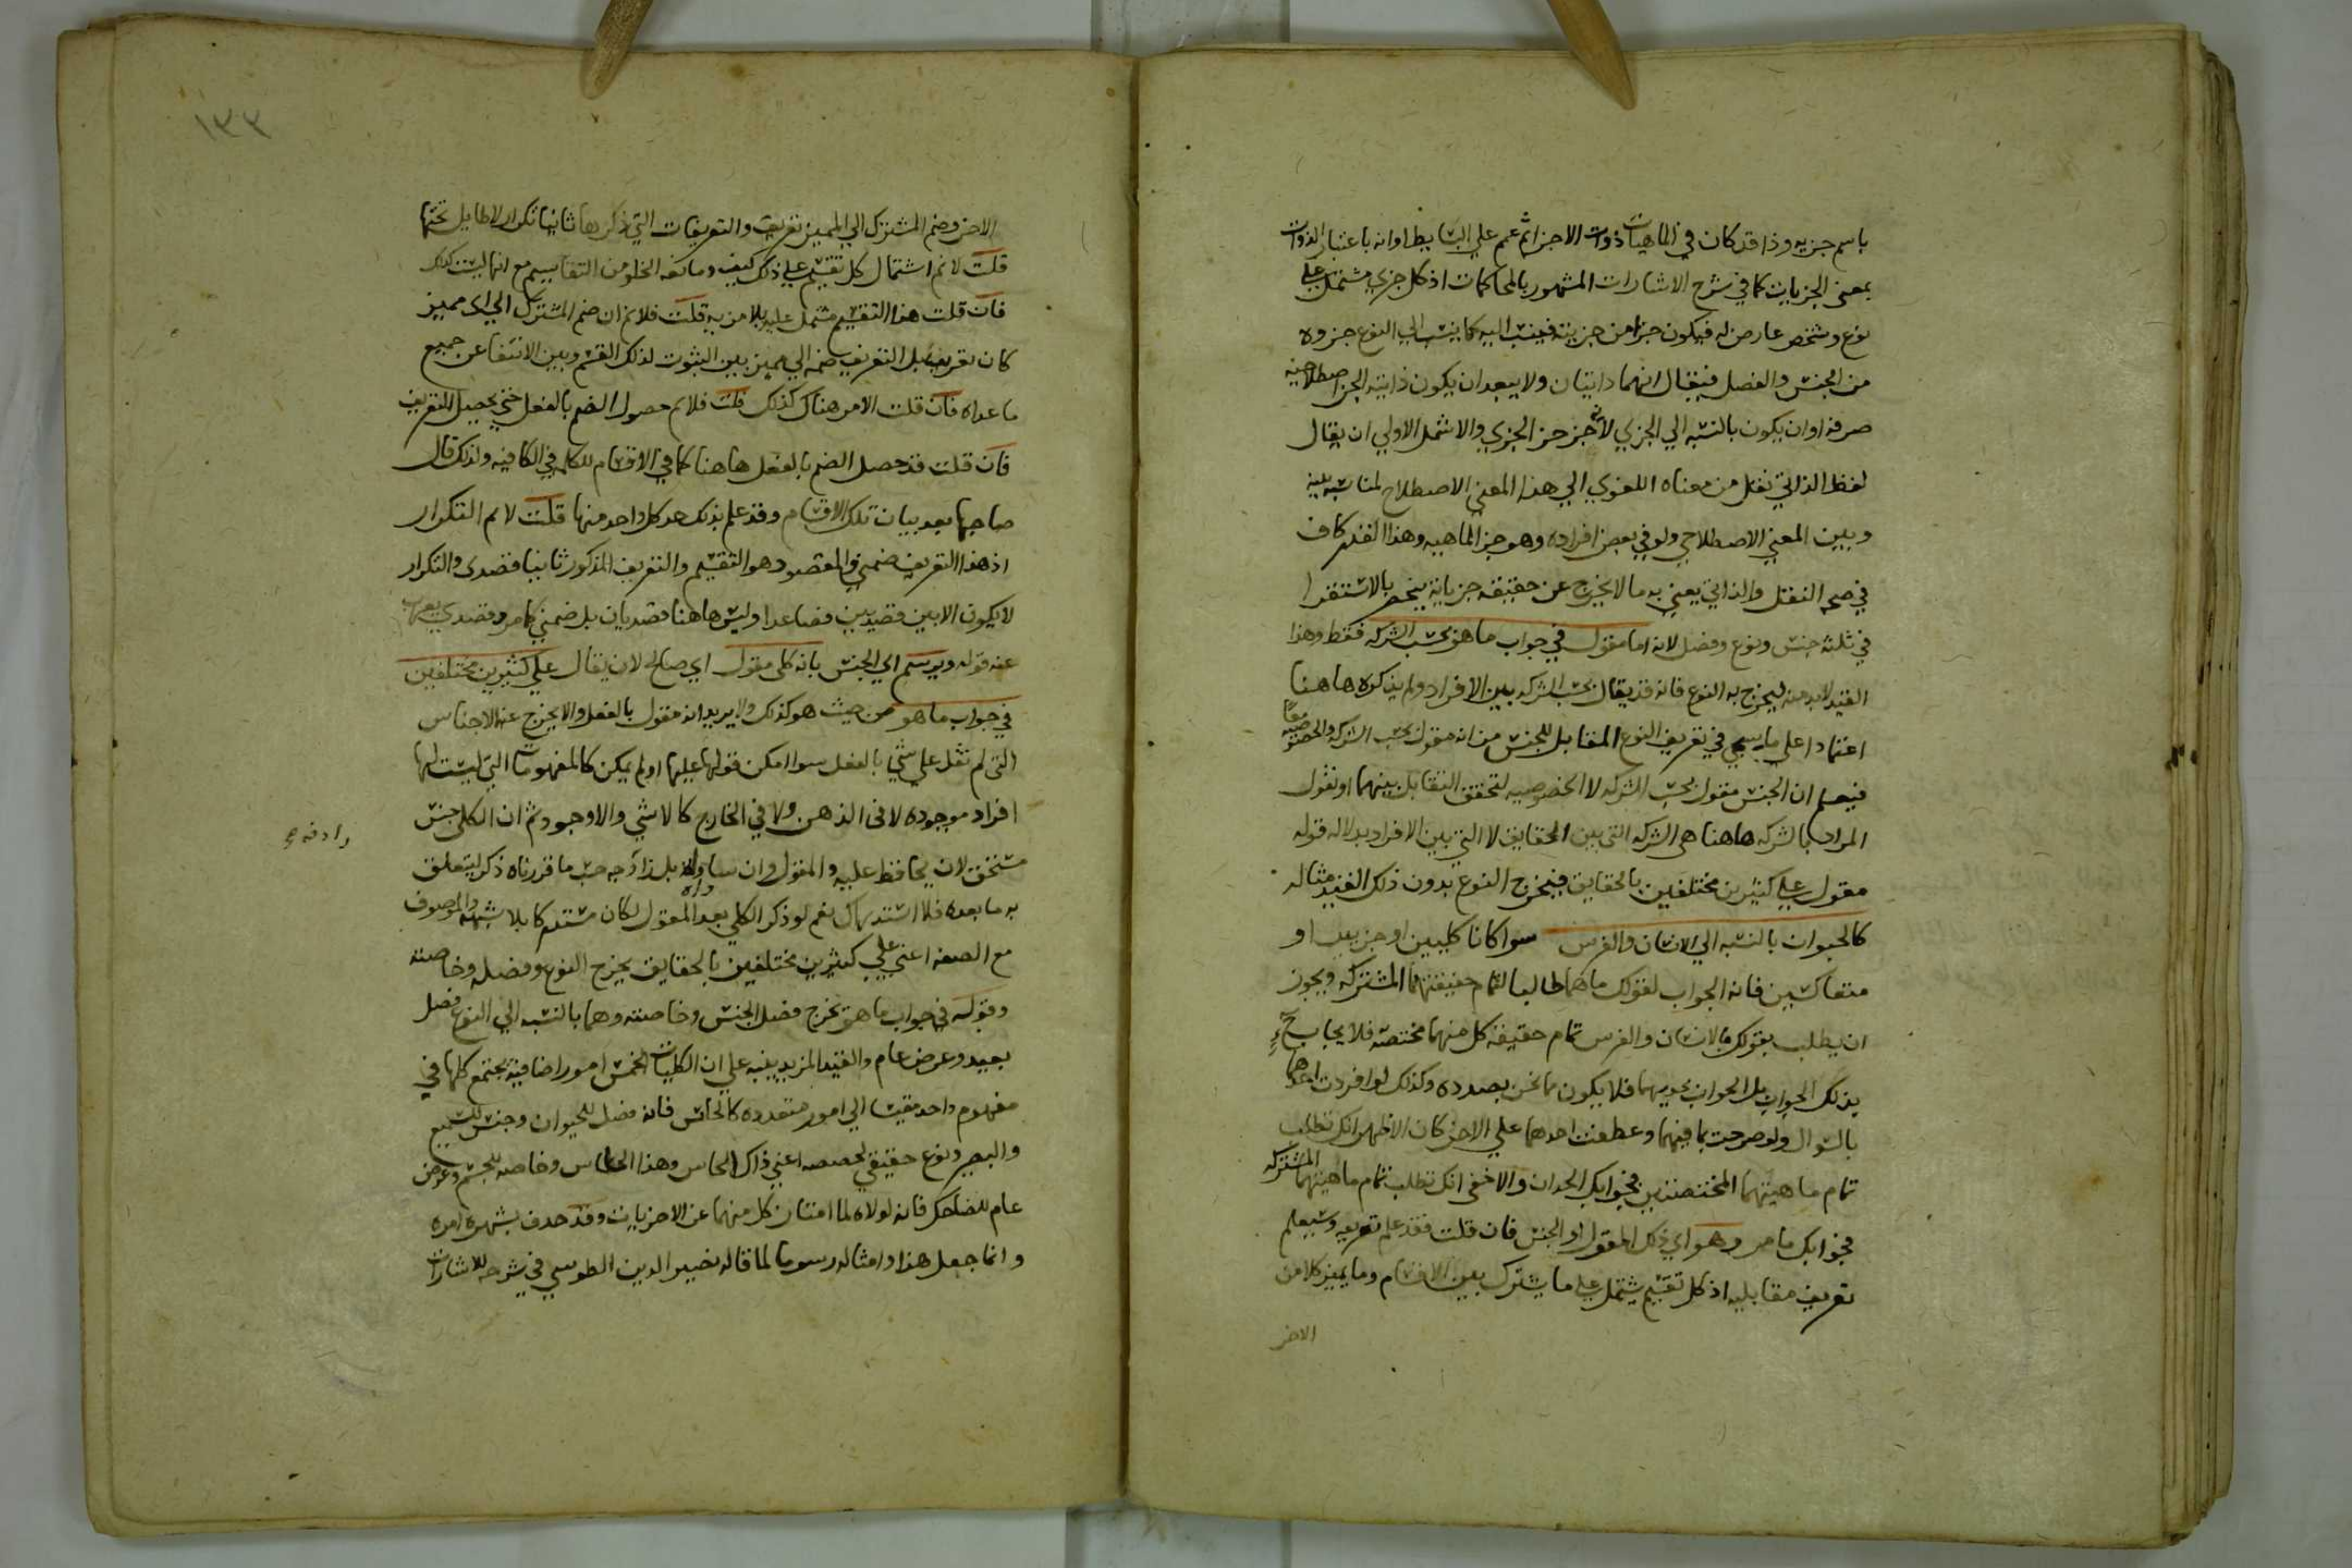 باسم جزيه وذا قد كان في الماهيات ذوات الاجزا ثم عمم علي البسايط او انه باعتبار الذوات
بمعني الجزييات كما في شرح الاشارات المشهور بالمحاكمات اذ كل جزي مشتمل علي
نوع وتشخص عارض له فيكون جزا من جزييته فينسب اليه كما ينسب الي النوع جزوه
من الجنس والفصل فيقال انهما ذاتيان ولا يبعد ان يكون ذاتية الجز اصطلاحيه
صرفه او ان يكون بالنسبه الي الجزي لانه جز جز الجزي والاشمل الاولي ان يقال
لفظ الذاتي نقل من معناه اللغوي الي هذا المعني الاصطلاح لمناسبه بينه
وبين المعني الاصطلاحي ولو في بعض افراده وهو جز الماهيه وهذا القدر كاف
في صحه النقل والذاتي يعني به ما لا يخرج عن حقيقه جزياته ينحصر بالاستقرا
في ثلثه جنس ونوع وفصل لانه اما مقول في جواب ما هو بحسب الشركه فقط وهذا
القيد لابد منه ليخرج به النوع فانه قد يقال بحسب الشركه بين الافراد ولم يذكره هاهنا
اعتمادا علي ما يسمي في تعريف النوع المقابل للجنس من انه مقول بحسب الشركه والخصوصيه معًا
فيعلم ان الجنس مقول بحسب الشركه لا الخصوصيه لتحقق التقابل بينهما او نقول
المراد بالشركه هاهنا هي الشركه التي بين الحقايق لا التي بين الافراد بدلاله قوله
مقول علي كثيرين مختلفين بالحقايق فيخرج النوع بدون ذلك القيد مثاله
كالحيوان بالنسبه الي الانسان والفرس سوا كانا كليين او جزييين او
متعاكسين فانه الجواب لقولك ما هما طالبا لتمام حقيقتهما المشتركه ويجوز
ان يطلب بقولك ما الانسان والفرس تمام حقيقة كل منهما مختصة فلا يجاب ح
بذلك الجواب بل الجواب بحديهما فلا يكون مما نحن بصدده وكذلك لو افردت احدهما
بالسوال ولو صرحت بما فيهما وعطفت احدهما علي الاخر كان الاظهر انك تطلب
تمام ماهيتهما المختصتين فجوابك الحدان والاخفي انك تطلب تمام ماهيتهما المشتركه
فجوابك ما مر وهو اي ذلك المقول او الجنس فان قلت فقد علم تعريفه وسيعلم
تعريف مقابليه اذ كل تقسيم يشتمل علي ما يشترك بين الاقسام وما يميز كلا من
الاخر
١٣٣
الاخر وضم المشترك الي المميز تعريف والتعريفات التي ذكرها ثانيا تكرار لا طايل تحتها
قلت لا نم اشتمال كل تقسيم علي ذلك كيف ومانعه الخلو من التقاسيم مع انها ليست كذلك
فان قلت هذا التقسيم مشتمل عليه بلا مريه قلت فلا نم ان ضم المشترك الي اي مميز
كان تعريف بل التعريف ضمه الي مميز بين الثبوت لذلك القسم وبين الانتفا عن جميع
ما عداه فان قلت الامر هناك كذلك قلت فلا نم حصول الضم بالفعل حتي يحصل التعريف
فان قلت قد حصل الضم بالفعل هاهنا كما في الاقسام للكلمه في الكافيه ولذلك قال
صاحبها بعد بيان تلك الاقسام وقد علم بذلك حد كل واحد منها قلت لا نم التكرار
اذ هذا التعريف ضمني والمقصود هو التقسيم والتعريف المذكور ثانيا قصدي والتكرار
لا يكون الا بين قصديين فصاعدا وليس هاهنا قصديان بل ضمني كما مر وقصدي يعرب
عنه قوله ويرسم اي الجنس بانه كلي مقول اي صالح لان يقال علي كثيرين مختلفين
في جواب ما هو من حيث هو كذلك ولا يريد انه مقول بالفعل والا يخرج عنه الاجناس
التي لم تقل علي شي بالفعل سوا امكن قولها عليها او لم يمكن كالمفهومات التي ليست لها
افراد موجوده لا في الذهن ولا في الخارج كالاشي والاوجود ثم ان الكلي جنس
مستحق لان يحافظ عليه والمقول وان ساواه بل زاد جه حسب ما قررناه ذكر ليتعلق
به ما بعده فلا استدراك نعم لو ذكر الكلي بعد المقول لكان مستدركا بلا شبهه والموصوف
مع الصفه اعني علي كثيرين مختلفين بالحقايق يخرج النوع وفصله وخاصته
وقوله في جواب ما هو يخرج فصل الجنس وخاصته وهما بالنسبه الي النوع فصل
بعيد وعرض عام والقيد المزيد ينبه علي ان الكليات الخمس امور اضافية يجتمع كلها في
مفهوم واحد مقيسا الي امور متعدده كالحاس فانه فصل للحيوان وجنس للسميع
والبصير ونوع حقيقي لحصصه اعني ذاك الحاس وهذا الحاس وخاصه للجسم وعرض
عام للضاحك فانه لولاه لما امتاز كل منهما عن الاخريات وقد حذف بشهره امره
وانما جعل هذا وامثاله رسوما لما قاله نصير الدين الطوسي في شرحه للاشارات